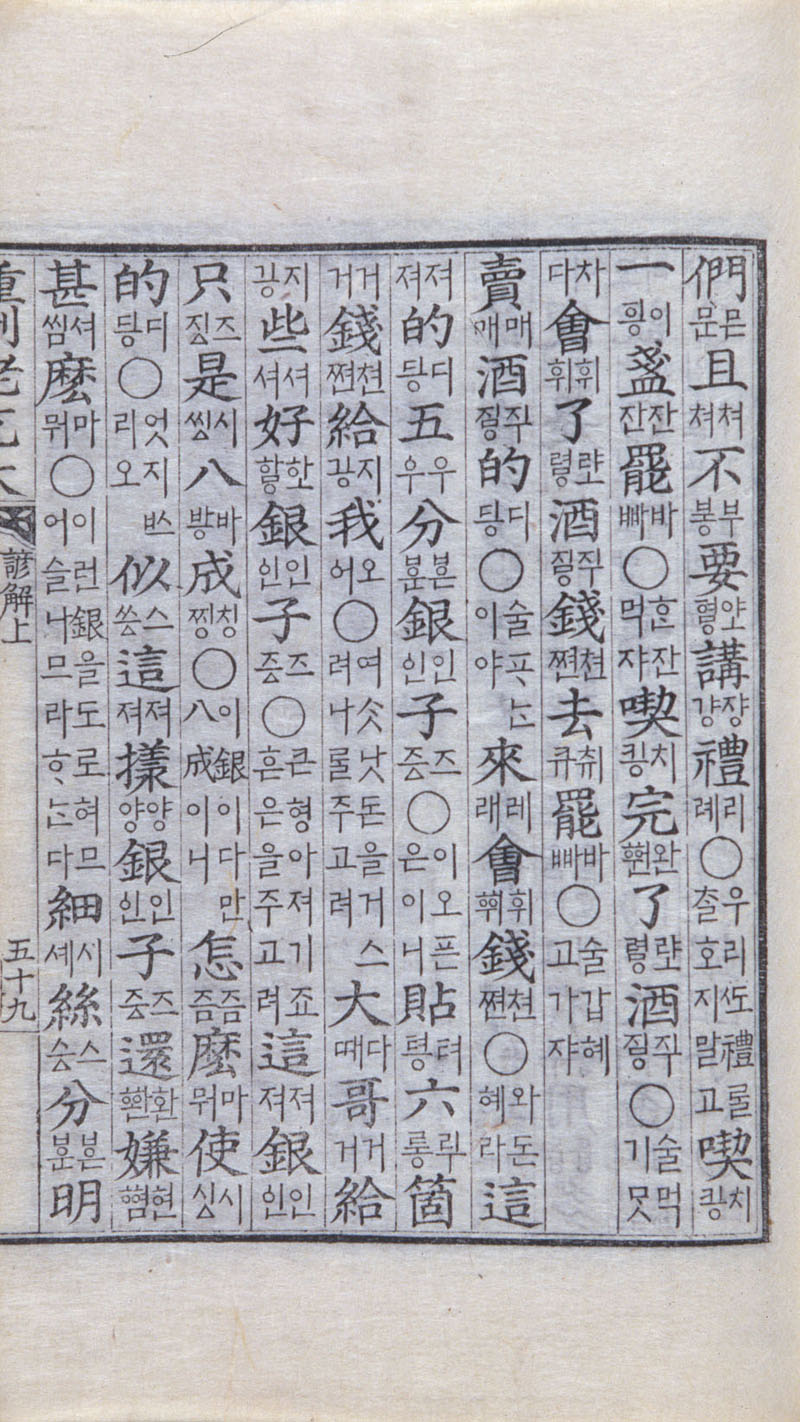 們문믄且쳐쳐不봉부要講禮례리○우리ᄯᅩ禮ᄅᆞᆯ출호지말고喫킹치
一ᅙᅵᆼ이盞잔잔罷빠바○ᄒᆞᆫ잔먹쟈喫킹치完ᅘᅯᆫ완了酒○술먹기ᄆᆞᆺ
차다會휘휘了酒錢쪈쳔去큐취罷빠바○술갑혜고가쟈
賣매매酒的딍디○술ᄑᆞᄂᆞᆫ이야來래레會ᅘᅱ휘錢쪈쳔○와돈혜라這
져져的딍디五우우分분븐銀인인子즈즈○이오픈은이니貼六箇
거거錢쪈쳔給깅지我어오○여ᄉᆞᆺ낫돈을거스려나ᄅᆞᆯ주고려大때다哥거거給
깅지些셔셔好銀인인子즈즈○큰형아져기죠흔은을주고려這져져銀인인
只징즈是씽시八방바成찡칭○이銀이다만八成이니怎즘즘麽뭐마使싱시
的딍디○엇지ᄡᅳ리오似쓩스這져져㨾양양銀인인子즈즈還ᅘᅪᆫ환嫌ᅘᅧᆷ현
甚씸셔麽뭐마○이런銀을도로혀므어슬나므라ᄒᆞᄂᆞ다細셰시絲승스分분븐明
重刊老乞大 諺解上 五十九